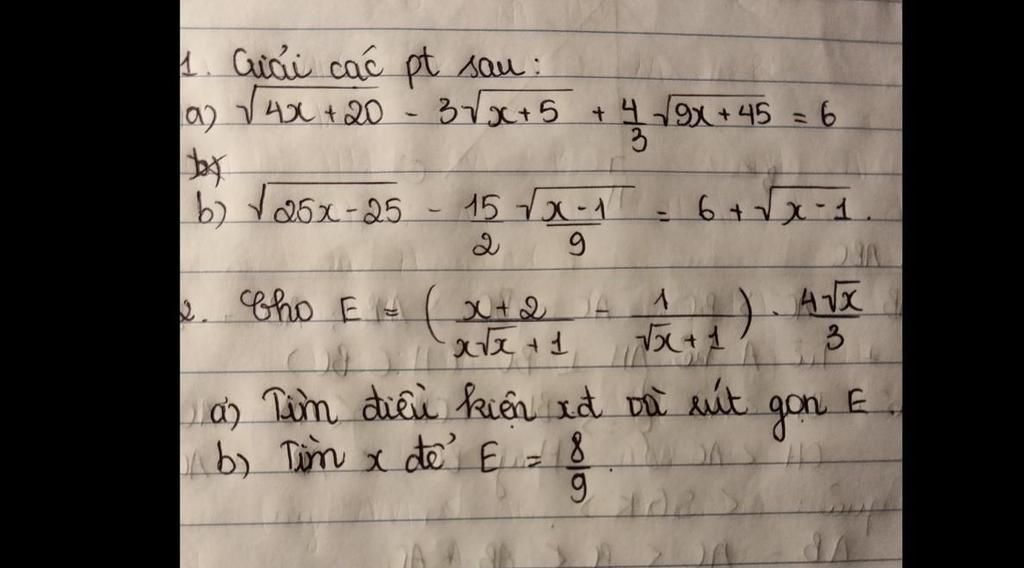 1. Giải các pt sau:
a) √(4x + 20) - 3√(x + 5) + 4/3 √(9x + 45) = 6
b) √(25x - 25) - 15/2 √((x - 1)/9) = 6 + √(x - 1).
2. Cho E = ((x + 2)/(x√x + 1) - 1/(√x + 1)) . 4√x/3
a) Tìm điều kiện xđ và rút gọn E.
b) Tìm x để E = 8/9.